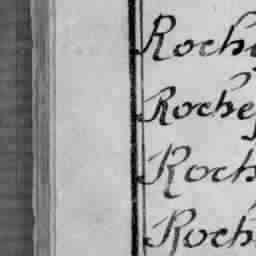 Roche
Rochef
Roch
Roch